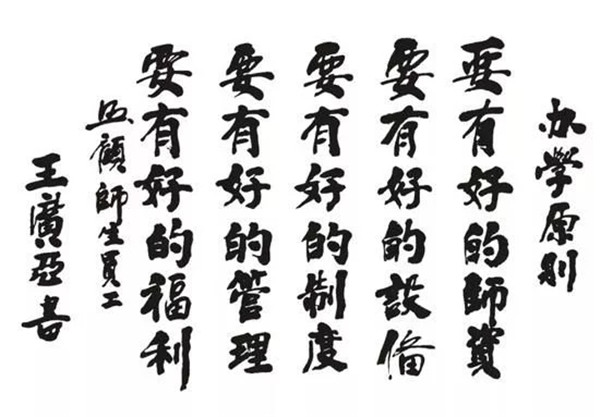 办學原則
要有好的師資
要有好的設俻
要有好的制度
要有好的管理
要有好的福利
照顧師生員工
王廣亞書